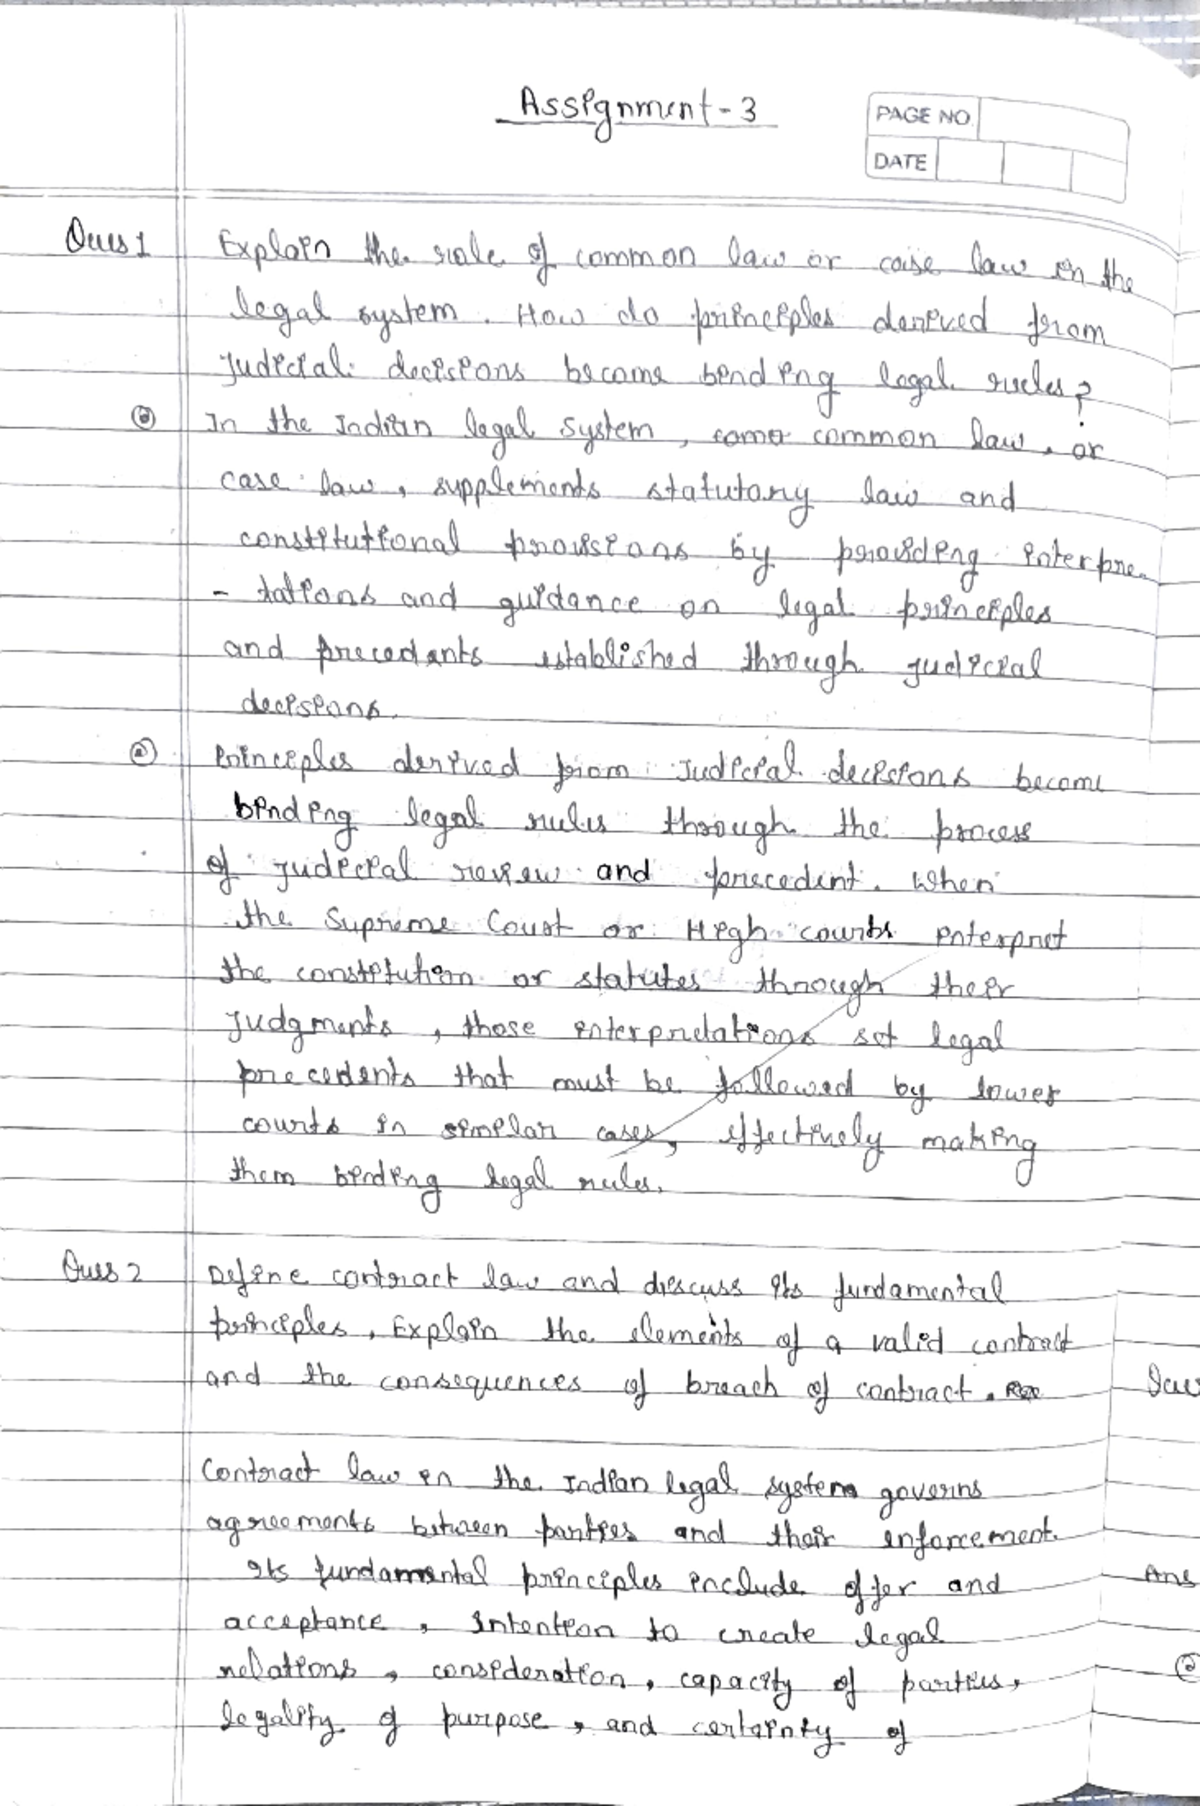 Assignment-3
PAGE NO.
DATE
Ques 1 Explain the role of common law or case law in the
legal system. How do principles derived from
judicial decisions become binding legal rules?
In the Indian legal system, common law, or
case law, supplements statutory law and
constitutional provisions by providing interpre-
- tations and guidance on legal principles
and precedants established through judicial
decisions.
Principles derived from Judicial decisions become
binding legal rules through the process
of judicial review and precedent. When
the Supreme Court or High courts interpret
the constitution or statutes through their
judgments, those interpretations set legal
precedents that must be followed by lower
courts in similar cases, effectively making
them binding legal rules.
Ques 2 Define contract law and discuss its fundamental
principles. Explain the elements of a valid contract
and the consequences of breach of contract.
Contract law in the Indian legal system governs
agreements between parties and their enforcement.
Its fundamental principles include offer and
acceptance, Intention to create legal
relations, consideration, capacity of parties,
legality of purpose, and certainty of
Ans